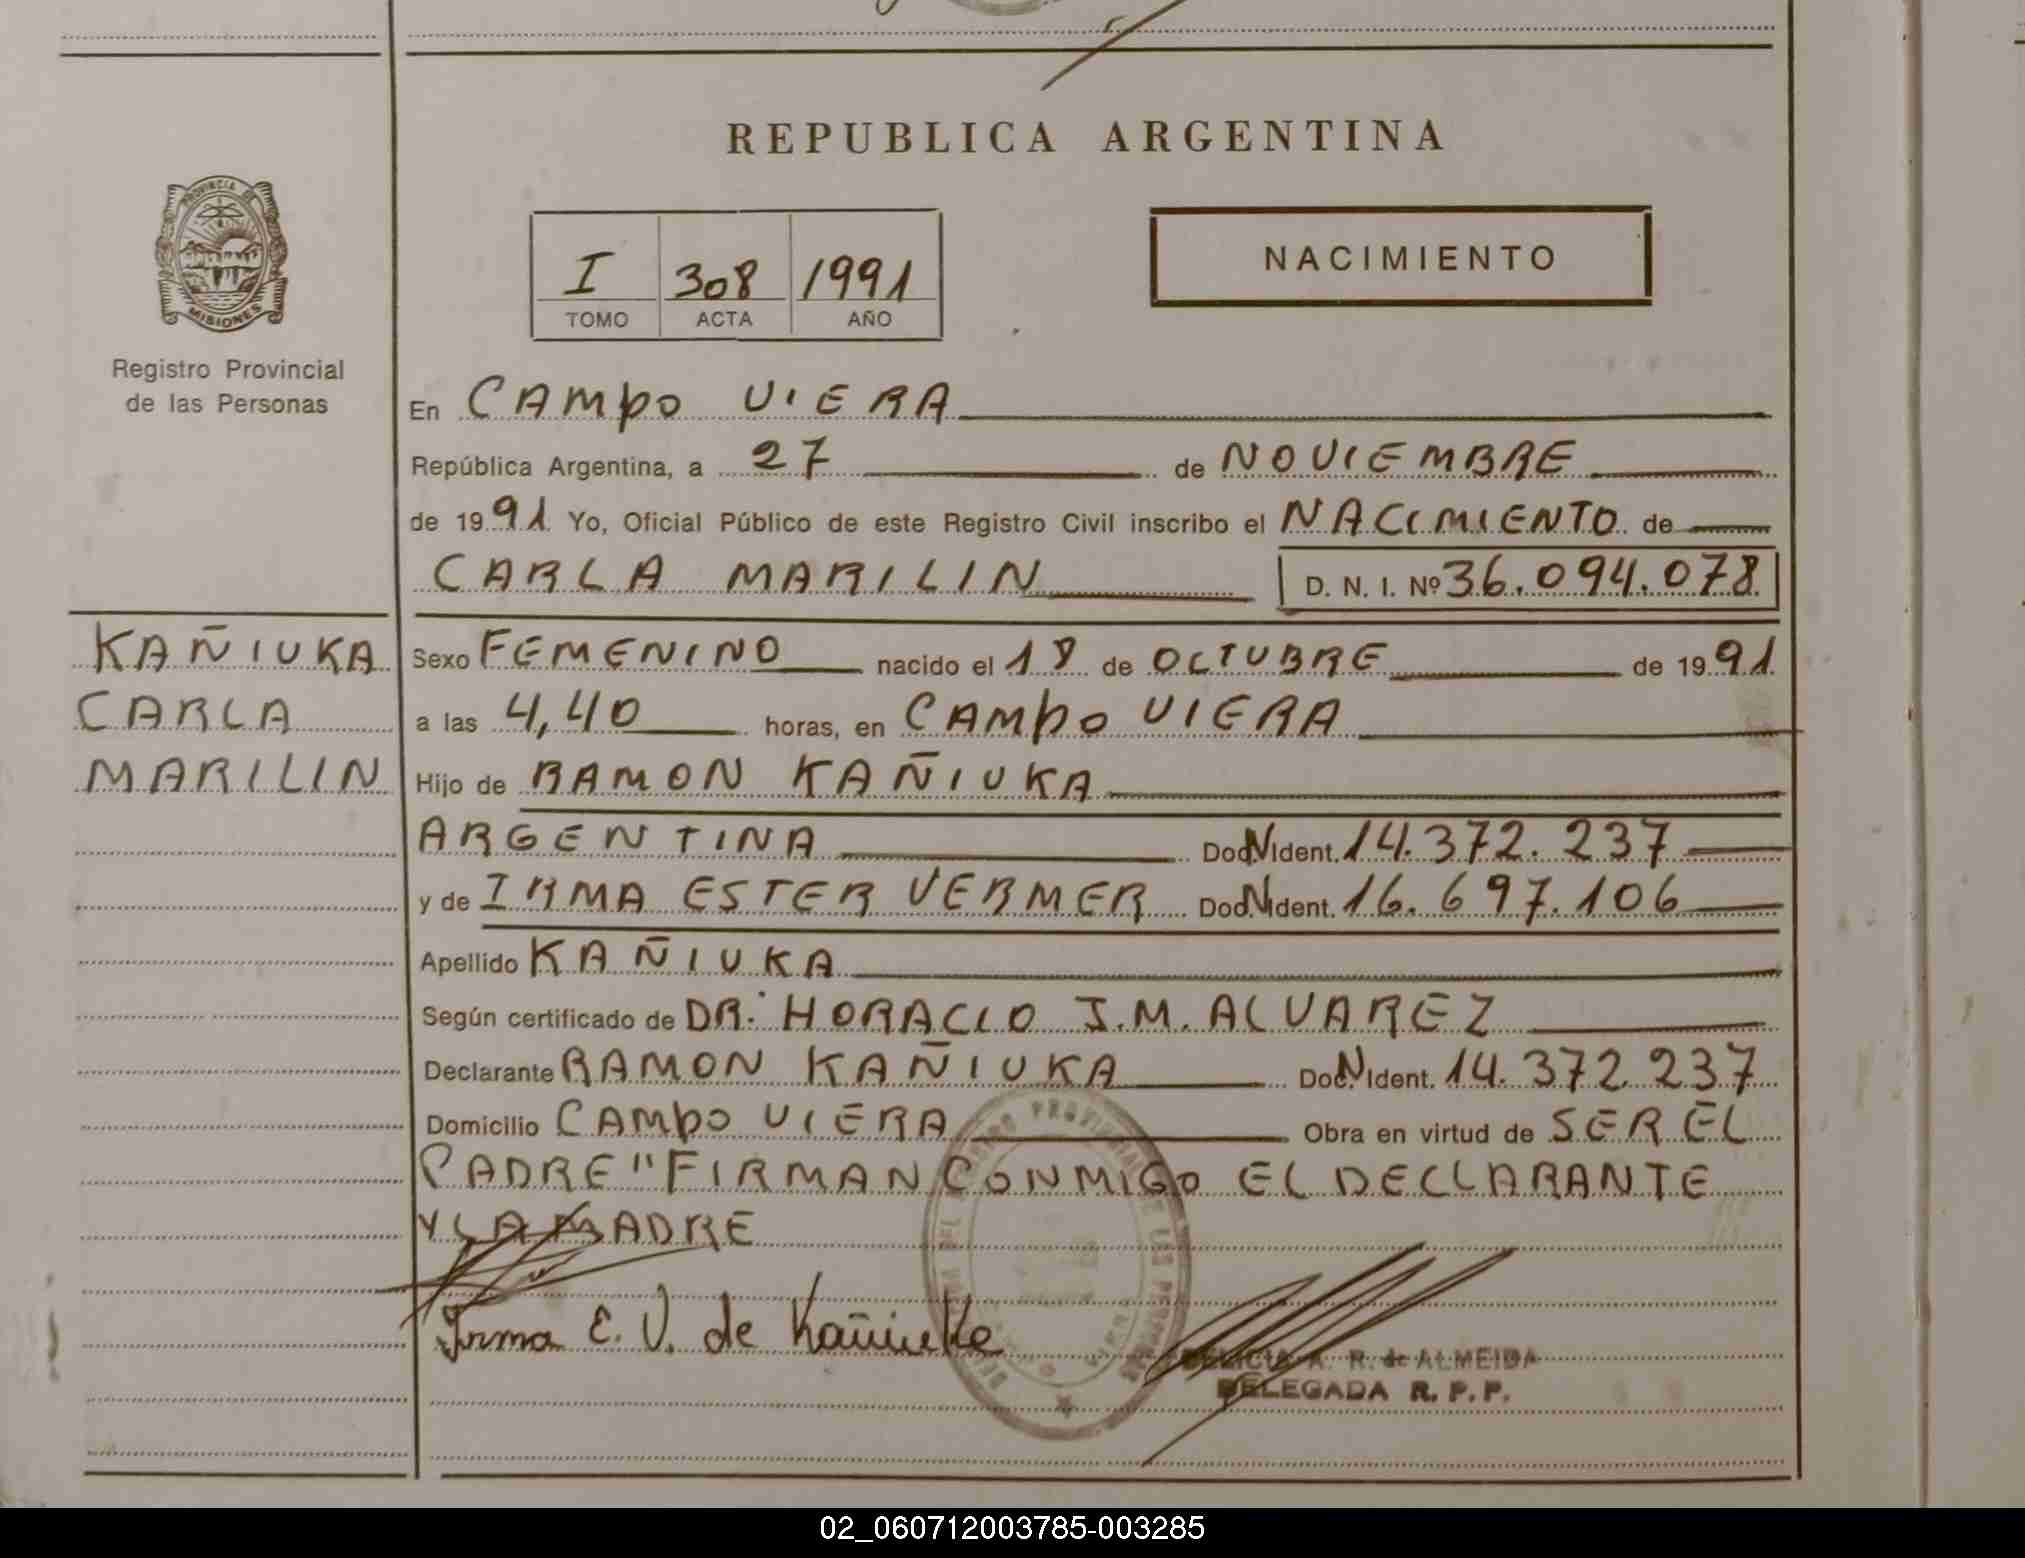 REPUBLICA ARGENTINA
PROVINCIA DE MISIONES
Registro Provincial
de las Personas
I 308 1991
TOMO ACTA AÑO
NACIMIENTO
En CAMPO VIERA
República Argentina, a 27 de NOVIEMBRE
de 1991 Yo, Oficial Público de este Registro Civil inscribo el NACIMIENTO de
CARLA MARILIN D. N. I. Nº 36.094.078
KAÑIUKA
CARLA
MARILIN
Sexo FEMENINO nacido el 18 de OCTUBRE de 1991
a las 4,40 horas, en CAMPO VIERA
Hijo de RAMON KAÑIUKA
ARGENTINA Doc.N.Ident. 14.372.237
y de IRMA ESTER VERMER Doc.N.Ident. 16.697.106
Apellido KAÑIUKA
Según certificado de DR. HORACIO J.M. ALVAREZ
Declarante RAMON KAÑIUKA Doc.N.Ident. 14.372.237
Domicilio CAMPO VIERA Obra en virtud de SER EL
PADRE "FIRMAN CONMIGO EL DECLARANTE
Y LA MADRE
Irma E. V. de Kañiuka
DELICIA A. R. de ALMEIDA
DELEGADA R. P. P.
02_060712003785-003285